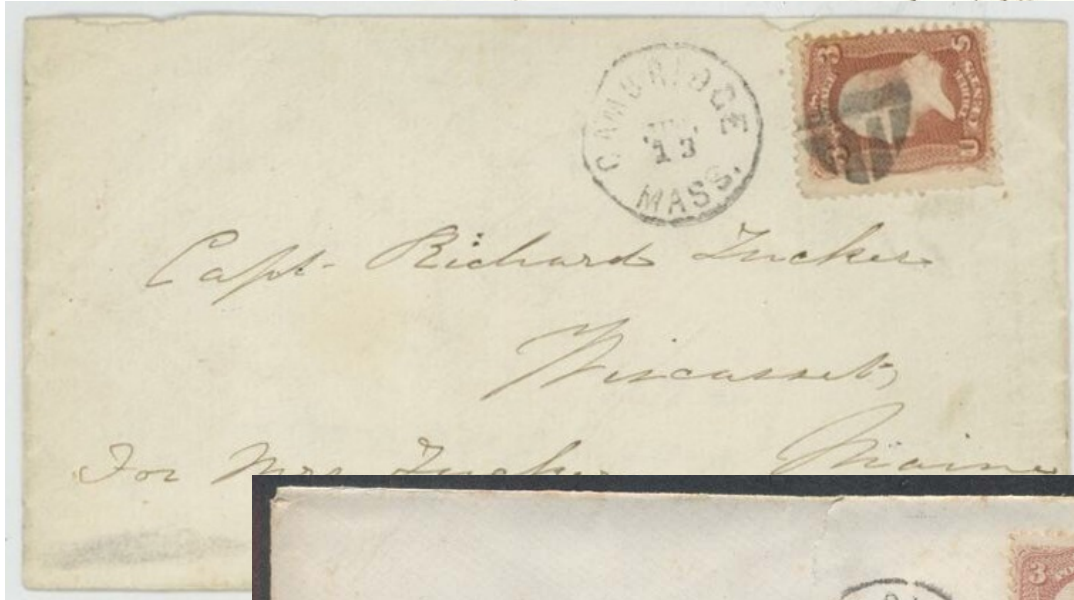 CAMBRIDGE
13
MASS.
3 U S
THREE CENTS
Capt. Richard Tucker
Wiscasset,
Maine
For Mrs Tucker
3